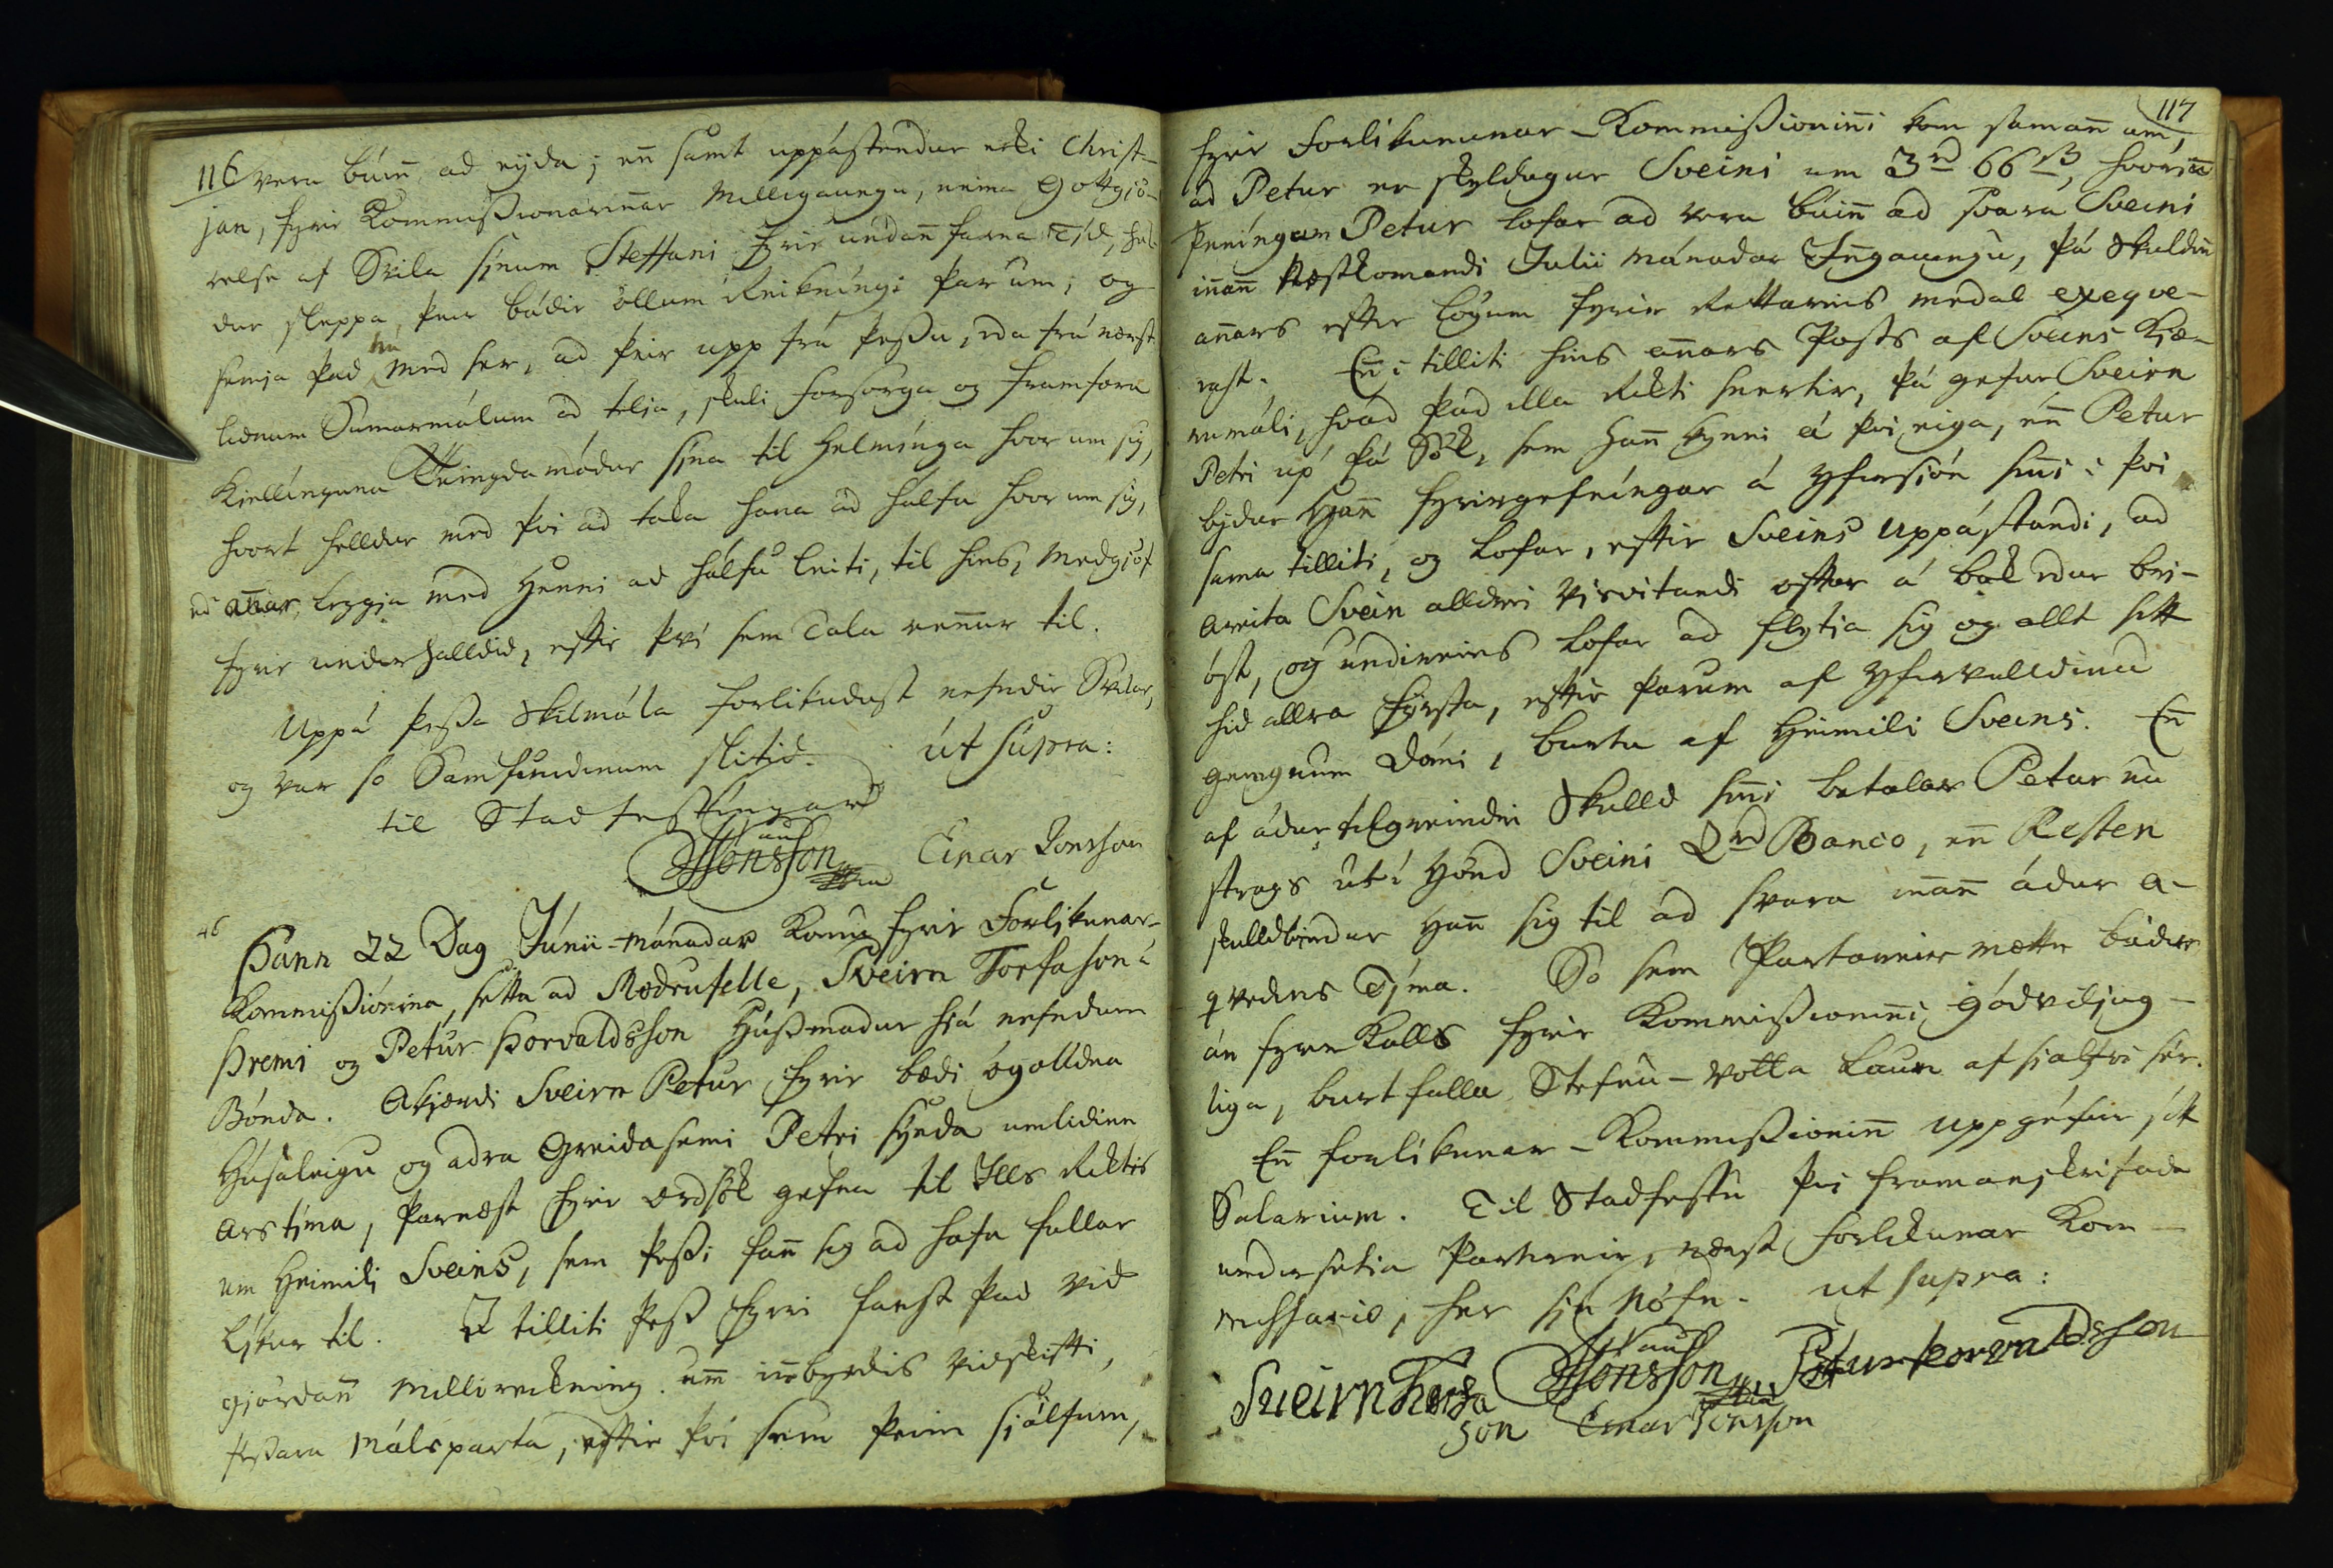 116 vera búinn ad eyda; enn samt uppástendur ecki Christ-
jan, fyrir Kommissionarinnar Milligaungu, neina Gottgiö-
relse af Svila sínum Steffani fyrir undann farna Tíd, hel-
dur sleppa þeir bádir öllum Reikníngi þar um; og
semja þad nú med ser, ad þeir upp frá þessu, eda frá næst
lidnum Sumarmálum ad telja, skuli forsorga og framfæra
Kiellinguna Teingdamódur sína til Helmínga hvor um sig,
hvort helldur med því ad taka hana ad hálfu hvor um sig,
ed annar leggja med Henni ad hálfu leiti, til hins, Medgjöf
fyrir underhalldid, eftir því sem Tala rennur til.
Uppá þessa Skilmála forlikudust nefndir Svilar,
og var so Samfundinum slitid. út supra:
til Stadfestingar
JJonsson Einar Jonsson
46
Þann 22 Dag Júnii-mánadar komu fyrir Forlikunar-
Kommissiónina, setta ad Mødrufelle, Sveirn Torfason á
Þremi og Petur Þorvaldsson Húsmadur hjá nefndum
Bónda. Akjærdi Sveirn Petur fyrir bædi ógolldna
Húsaleigu og adra Greidasemi Petri synda umlidinn
Arstíma, þarnæst fyrir ordsök gefna til Ills Riktis
um Heimili Sveins, sem þessi fann sig ad hafa fullar
líkur til. I tilliti þess fyrri fanst þad vid
gjördann Millireikning um innbyrdis Vidskifti,
þessara Málsparta, eftir því sem þeim sjálfum,
117
fyrir Forlikunar-Kommissioninni kom samann um,
ad Petur er skyldugur Sveini um 3rd 66 ß, hvorium
Peníngum Petur lofar ad vera búinn ad svara Sveini
innann Næstkomandi Julii Mánadar Útgaungu, þá Skuldin
annars eftir Lögum fyrir Rettarins medal exeqve-
rast. Enn i tilliti hins annars Posts af Sveins Kjæ-
rumáli, hvad þad illa Rikti snertir, þá gefur Sveirn
Petri up þá Sök, sem Hann kynni á því eiga, enn Petur
bydur Hann fyrirgefníngar á yfirsjón sinni i því
sama tilliti, og lofar, eftir Sveins Uppástandi, ad
áreita Svein alldrei Visvitandi optar á bak edur brí-
óst, og undireins lofar ad flytja sig og allt sitt
hid allra fyrsta, eftir þarum af Yfirvalldinu
geingnum Dómi, burtu af Heimili Sveins. En
af ádur tilgreindri Skulld sinni betalar Petur nú
strags út i Hönd Sveini 2rd Banco, enn Resten
skulldbindur Hann sig til ad svara innann ádur á-
qvedins Tíma. So sem Partarnir mættu bádir
án fyrirkalls fyrir Kommissioninni, gódviljug-
liga, burtfalla Stefnu-votta Laun af sjálfu sér.
Enn forlikunar-Kommissioninn uppgefur sitt
Salarium. Til Stadfestu því framanskrifada
undirsetia Partarnir, næst forlikunar Kom-
missario, hér sín Nöfn. ut supra:
JJonsson Petur Þorvaldsson
Sveirn Torfa
son Einar Jonsson